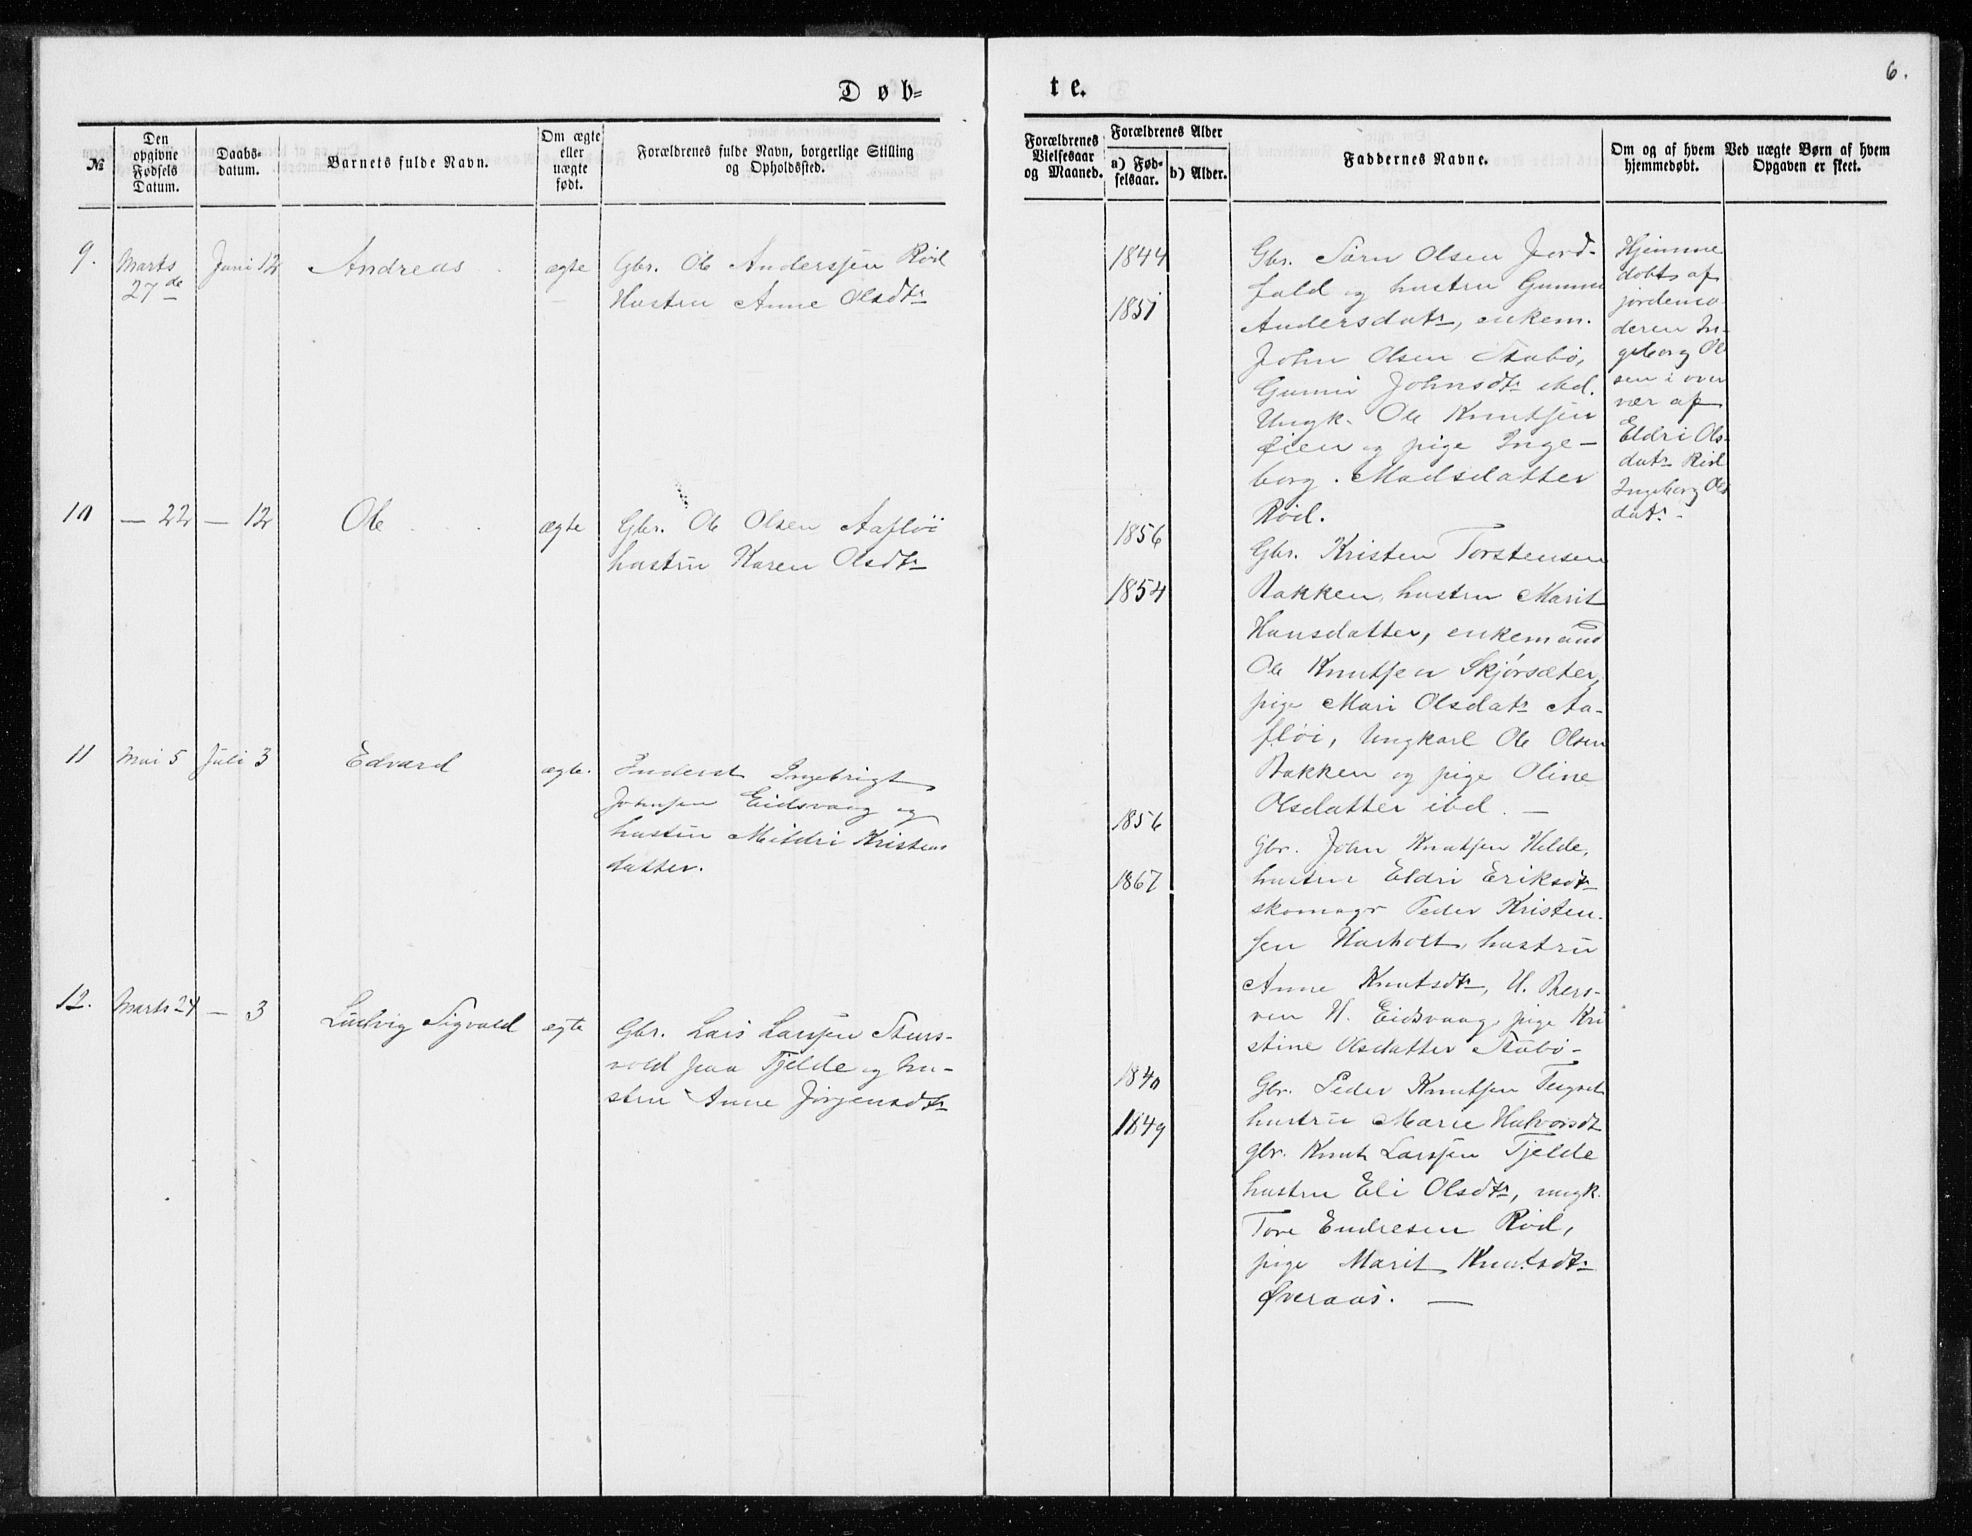 Døb=
te.
6.
№
Den opgivne Fødsels Datum.
Daabs-datum.
Barnets fulde Navn.
Om ægte eller uægte født.
Forældrenes fulde Navn, borgerlige Stilling og Opholdssted.
Forældrenes Vielsesaar og Maaned.
Forældrenes Alder
a) Fødselsaar.
b) Alder.
Faddernes Navne.
Om og af hvem hjemmedøbt.
Ved uægte Børn af hvem Opgaven er skeet.
9.
Marts
27de
Juni 12
Andreas
ægte
Gbr. Ole Anderssen Röd
Hustru Anne Olsdtr
1844
1851
Gbr. Sörn Olsen Jord-
fald og hustru Gunni
Andersdatr, enkem.
John Olsen Stubö,
Gunni Johnsdtr ibd.
Ungk. Ole Knutsen
Øien og pige Inge-
borg Madsdatter
Röd.
Hjemme
döbt af
jordemo
deren In-
geborg Ol
sen i over
vær af
Eldri Ols-
datr Röd
Ingeborg Ols
datr
10
— 22
— 12
Ole
ægte
Gbr. Ole Olsen Aaflöi
hustru Karen Olsdtr
1856
1854
Gbr. Kristen Torstensen
Bakken, hustru Marit
Hansdatter, enkemand
Ole Knutsen Skjørsæter,
pige Mari Olsdatr Aa-
flöi, Ungkarl Ole Olsen
Bakken og pige Oline
Olsdatter ibd. —
11
Mai 5
Juli 3
Edvard
ægte.
Inderst Ingebrigt
Johnsen Eidsvaag og
hustru Mildri Kristens
datter.
1856
1867
Gbr. John Knutsen Hilde,
hustru Eldri Eriksdtr
skomagr Peder Kristen-
sen Harholt, hustru
Anne Knutsdtr, U. Bers-
ven H. Eidsvaag, pige Kri
stine Olsdatter Stubö -
12.
Marts 24
— 3
Ludvig Sigvald
ægte
Gbr. Lars Larssen
vold paa Tjelde og hu-
stru Anne Jörgensdtr
1840
1849
Gbr. Peder Knutsen
hustru Marie Halvorsdt
gbr. Knut Larssen Tjelde
hustru Eli Olsdtr, ungk.
Tore Endresen Röd,
pige Marit Knutsdtr
Øveraas. —